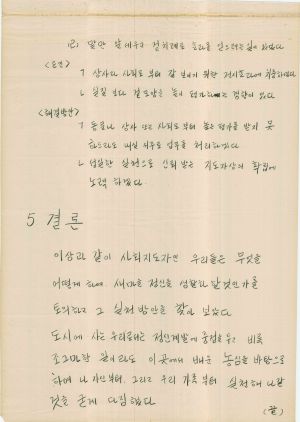 (2) 말만 앞세우고 겉치레로 효과를 얻으려는 일이 있었다
<요인>
ㄱ 상사나 사회로 부터 잘 보이기 위한 전시효과에 치중하였다
ㄴ 실질 보다 겉모양을 높이 평가하는 경향이 있다
<해결방안>
ㄱ 동료나 상사 또는 사회로 부터 높은 평가를 받지 못
하드라도 내실 위주로 업무를 처리하겠다
ㄴ 성실한 실천으로 신뢰 받는 지도자상의 확립에
노력 하겠다.
5 결론
이상과 같이 사회지도자인 우리들은 무엇을
어떻게 하여 새마을 정신을 생활화 할 것인가를
토의하고 그 실천 방안을 찾아 보았다
도시에 사는 우리로서는 정신계발에 중점을 두고 비록
조그마한 일이라도 이 곳에서 배운 농심을 바탕으로
하여 나 자신부터 그리고 우리 가족부터 실천해 나갈
것을 굳게 다짐했다
(끝)